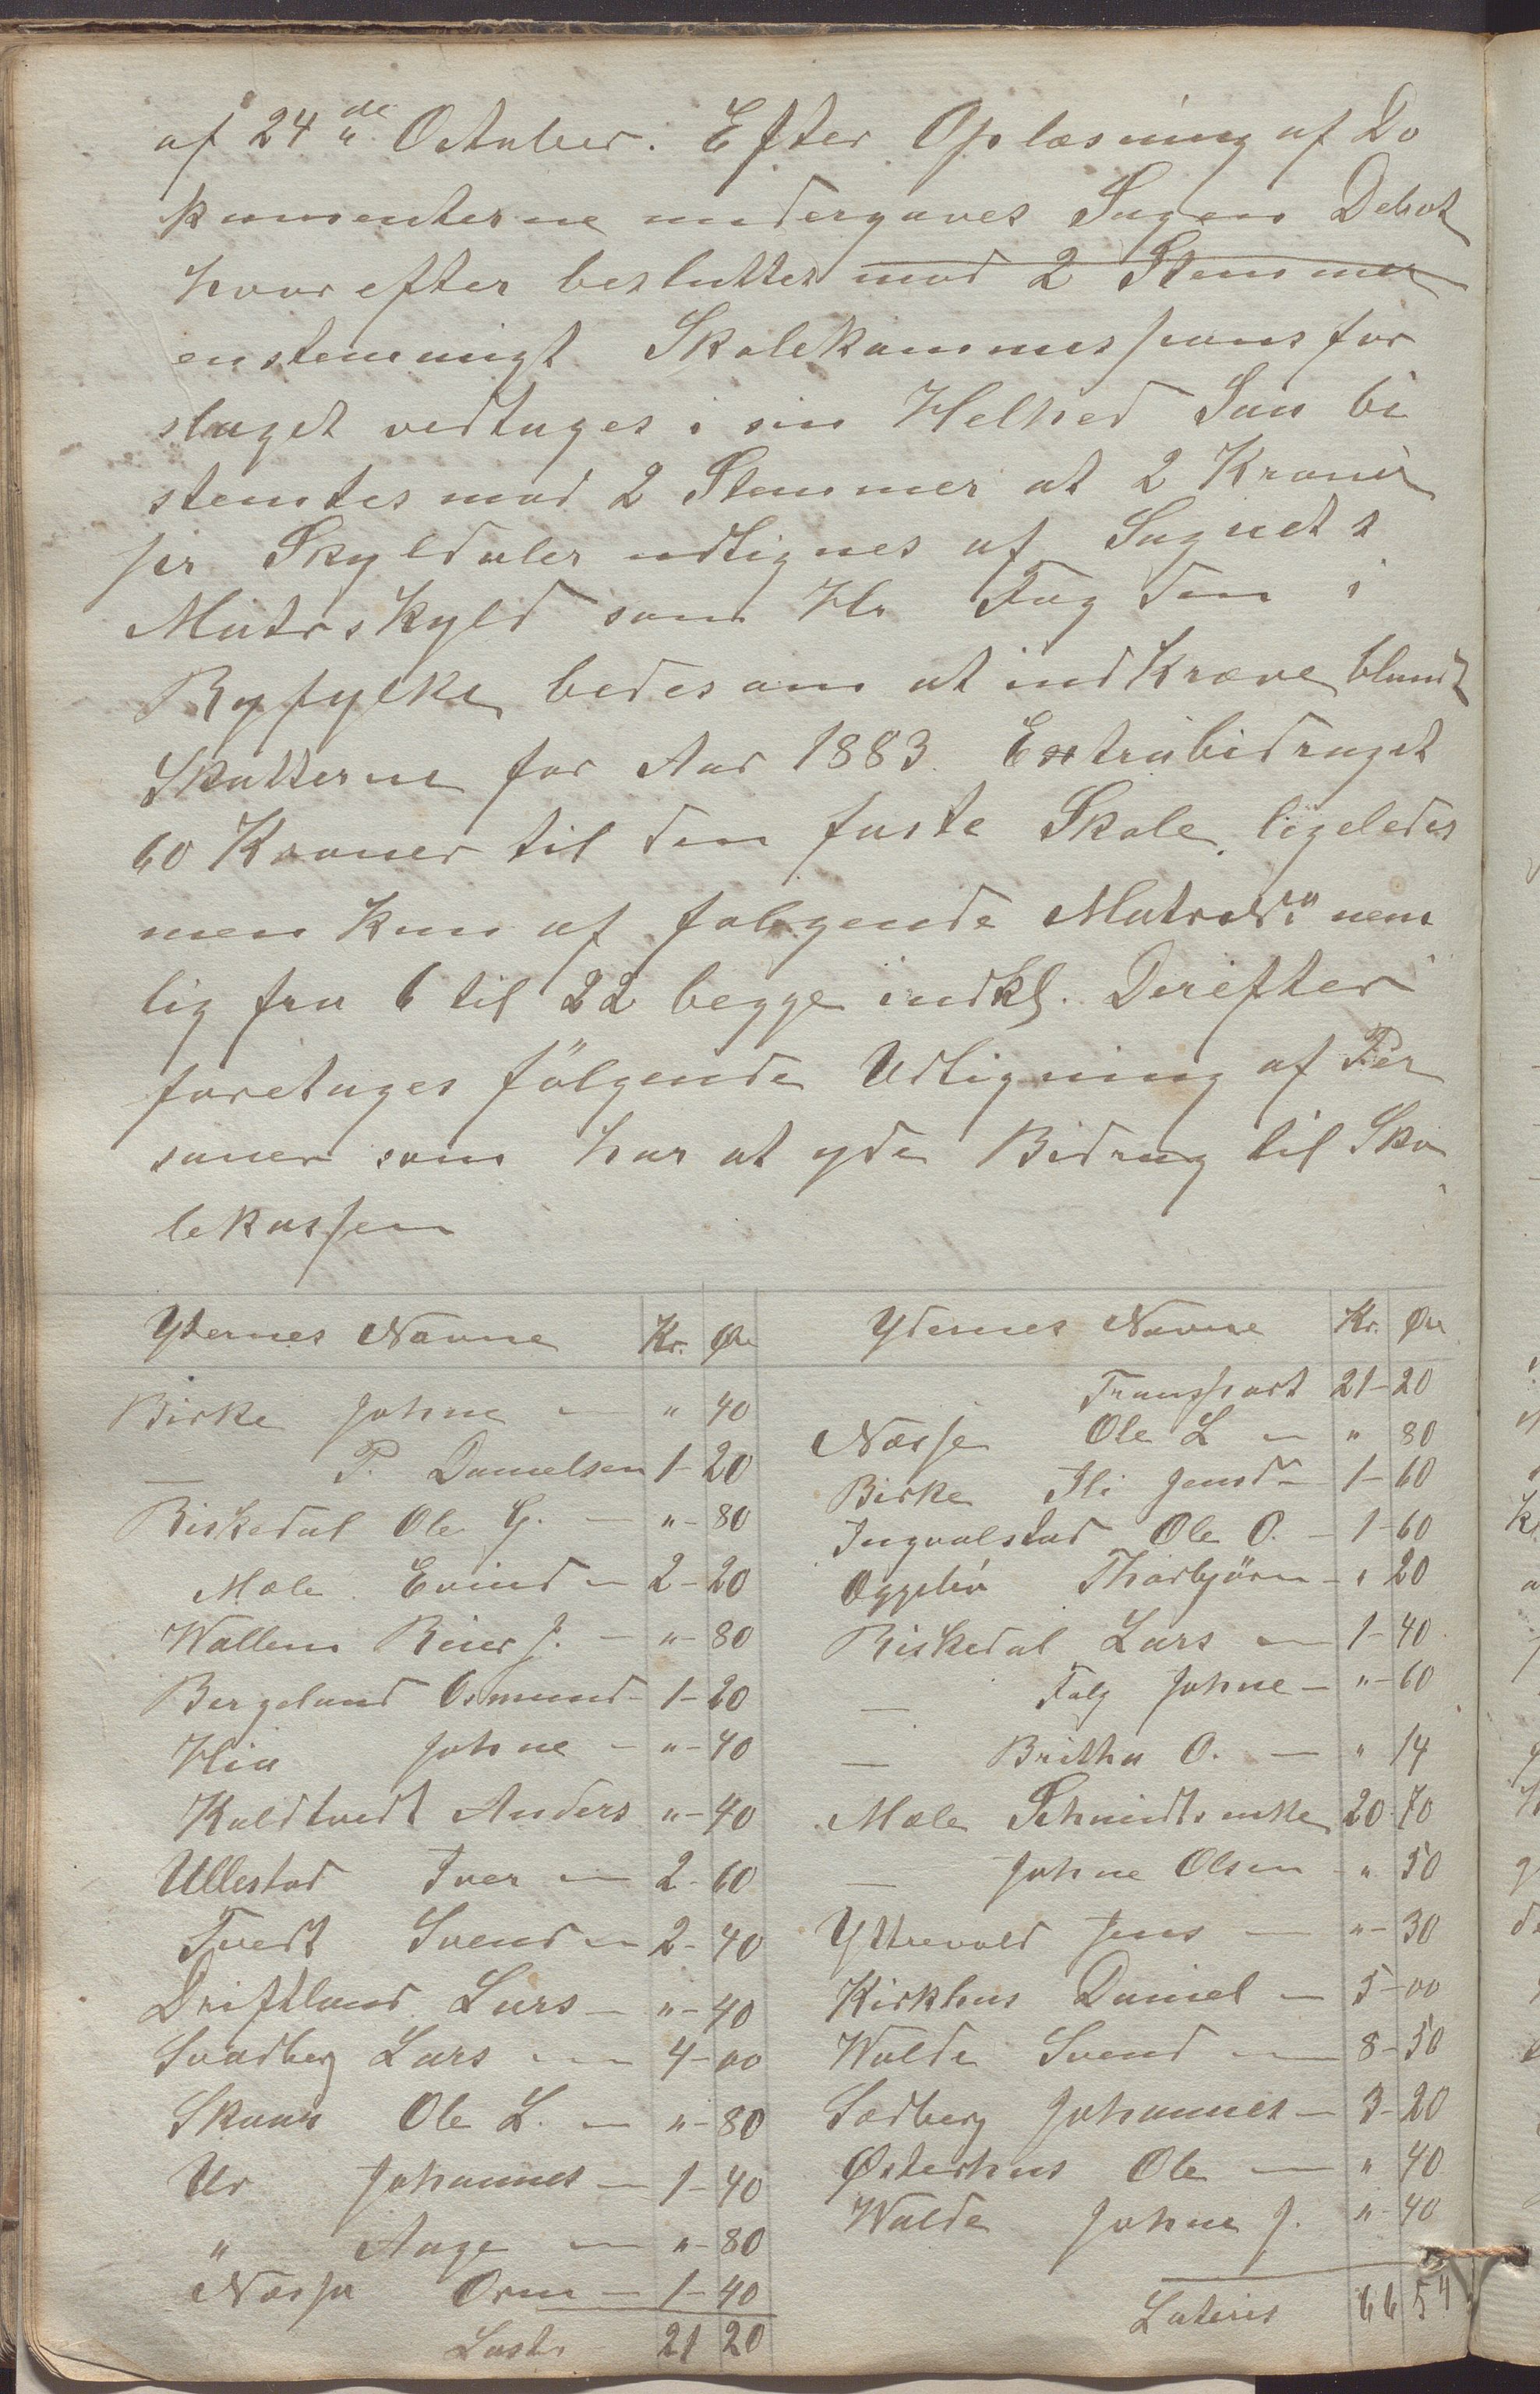 af 24de October. Efter Oplæsning af Do
kumenterne undergaves Sagen Debat
hvorefter besluttes mod 2 Stemmer
enstemmigt Skolekommissions for
slaget vedtages i sin Helhed Saa be
stemtes mod 2 Stemmer at 2 Kroner
pr Skylddaler udlignes af Sognets
Matrskyld som Hr Fogden i
Ryfylke bedes om at indkræve blandt
Skatterne for Aar 1883. Extrabidraget
60 Kroner til den faste Skole ligeledes
men kun af følgende nem
lig fra 6 til 22 begge indkl. Derefter
foretages følgende Udligning af Per
soner som har at yde Bidrag til Sko
lekassen
Ydernes Navne Kr. Øre
Birke Johne — " 40
— P. Danielsen 1-20
Riskedal Ole G. — "-80
Mæle Evind — 2-20
Wallem Reier J. — "-80
Bergeland Osmund — 1-20
Hia Johne — "-40
Koldtvedt Anders "-40
Ullestad Iver — 2-60
Tvedt Svend — 2-40
Driftland Lars — "-40
Svadberg Lars — 4-00
Skaar Ole L. — "-80
Ur Johannes — 1-40
" Aage — "-80
Næssa Orm — 1-40
21 20
Ydernes Navne Kr. Øre
Transport 21-20
Næsse Ole L — " 80
Birke Jensd — 1-60
Ingvalstad Ole O. — 1-60
Thorbjörn — " 20
Riskedal Lars — 1-40
— Johne — "-60
— Britha O. — " 14
Mæle Schmidts enke 20-70
— Johne Olsen " 50
Yttrevold Jens — "-30
Kirkhus Daniel — 5-00
Walde Svend — 8-50
Sædberg Johannes — 3-20
Østerhus Ole — " 40
Walde Johne J. "-40
Lateris 66 54